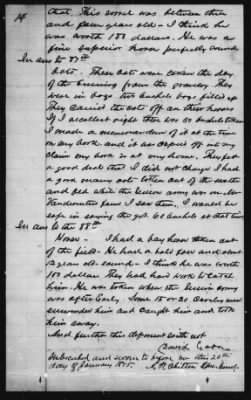 14
that. This sorrel was between three
and four years old - I think he
was worth 150 dollars. He was a
fine superior horse perfectly sound
In ans to 87th
Oats. These oats were taken the day
of the burning from the granary. They
were in bags two bushels bags filled up
They carried the oats off on their horses
If I recollect right there was 60 bushels taken
I made a memorandum of it at the time
in my book and it was copied off into my
claim my book is at my home. They fed
a good deal that I did not charge I had
a good many oats taken out of the
and fed while the Union army was on Mr
farm I saw them. I would be
safe in saying they got 60 bushels at that time
In ans to the 88th
Horse - I had a bay horse taken out
of the field. He had a bald face and about
12 year old. Sound. I think he was worth
100 dollars They had hard work to catch
him. He was taken when the Union army
was after Early. Some 15 or 20 Cavalry men
surrounded him and caught him and took
him away.
And further this deponent saith not
David
Subscribed and sworn to before me this 20th
day of January 1875.